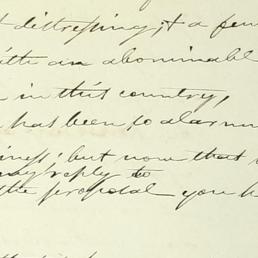 distressing; & a few
with an abominable
in this country,
has been so alarm
iness; but now that
may reply to
the proposal you h